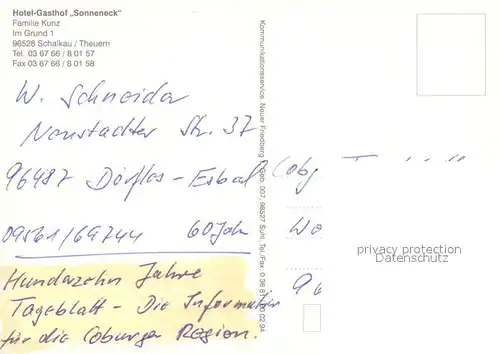 Hotel-Gasthof „Sonneneck"
Familie Kunz
Im Grund 1
96528 Schalkau / Theuern
Tel. 03 67 66 / 8 01 57
Fax 03 67 66 / 8 01 58
W. Schneider
Neustadter Str. 37
96487 Dörfles - Esbach / Cobg
09561/69744 60 Jahre
Hundertzehn Jahre
Tageblatt - Die Information
für die Coburger Region.
Kommunikationsservice, Neuer Friedberg 1, Geb. 007, 98527 Suhl, Tel./Fax: 0 36 81
02 94
privacy protection
Datenschutz